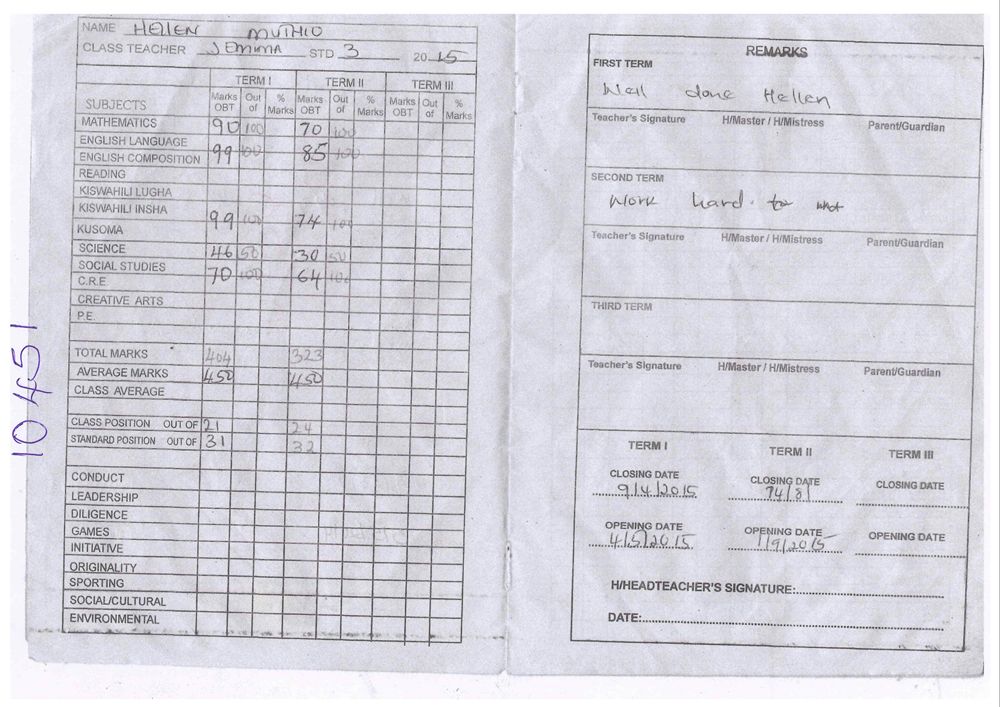 NAME HELLEN MUTHIO
CLASS TEACHER JEMIMA STD 3 2015
TERM I TERM II TERM III
SUBJECTS Marks OBT Out of % Marks Marks OBT Out of % Marks Marks OBT Out of % Marks
MATHEMATICS 90 100 70 100
ENGLISH LANGUAGE
ENGLISH COMPOSITION 99 100 85 100
READING
KISWAHILI LUGHA
KISWAHILI INSHA
KUSOMA 99 100 74 100
SCIENCE 46 50 30 50
SOCIAL STUDIES 70 100 64 100
C.R.E.
CREATIVE ARTS
P.E.
TOTAL MARKS 404 323
AVERAGE MARKS 450 450
CLASS AVERAGE
CLASS POSITION OUT OF 21 24
STANDARD POSITION OUT OF 31 32
CONDUCT
LEADERSHIP
DILIGENCE
GAMES
INITIATIVE
ORIGINALITY
SPORTING
SOCIAL/CULTURAL
ENVIRONMENTAL
10451
REMARKS
FIRST TERM
Well done Hellen
Teacher's Signature H/Master / H/Mistress Parent/Guardian
SECOND TERM
Work hard
Teacher's Signature H/Master / H/Mistress Parent/Guardian
THIRD TERM
Teacher's Signature H/Master / H/Mistress Parent/Guardian
TERM I TERM II TERM III
CLOSING DATE CLOSING DATE CLOSING DATE
9/4/2015 74/8/
OPENING DATE OPENING DATE OPENING DATE
4/5/2015 1/9/2015
H/HEADTEACHER'S SIGNATURE:
DATE: